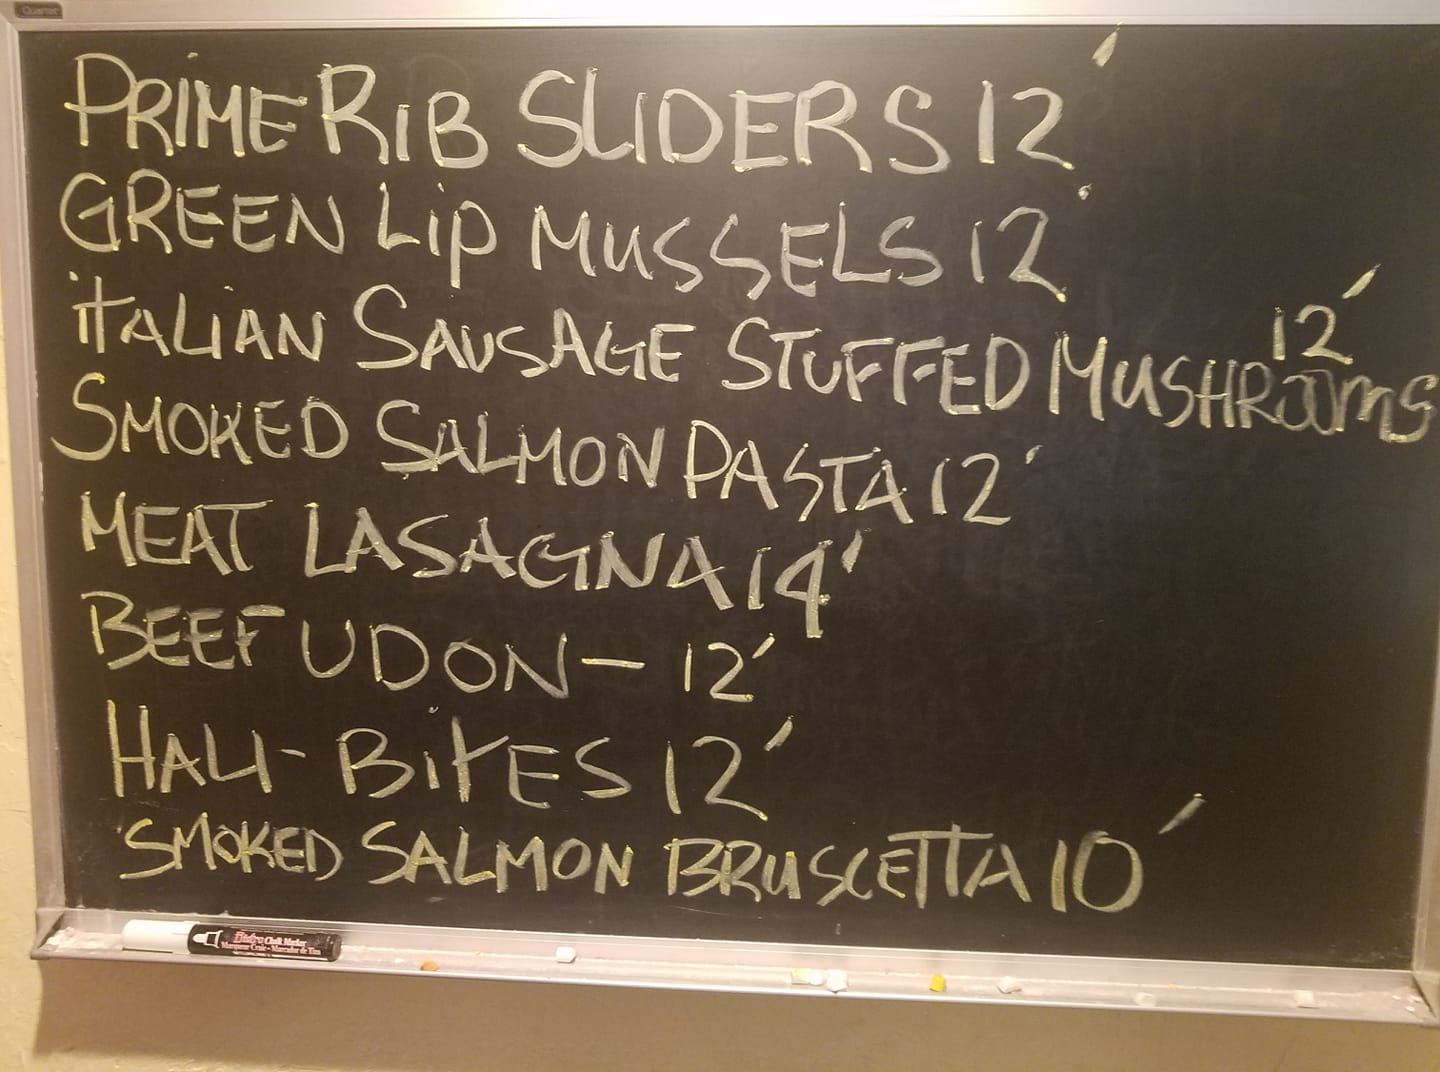 Quartet
PRIME RIB SLIDERS 12'
GREEN Lip MUSSELS 12'
iTALIAN SAUSAGE STUFFED MUSHROOMS 12'
SMOKED SALMON PASTA 12'
MEAT LASAGNA 14'
BEEF UDON - 12'
HALI-BiTES 12'
SMOKED SALMON BRUSCETTA 10'
Bistro Chalk Marker
Marqueur Craie - Marcador de Tiza